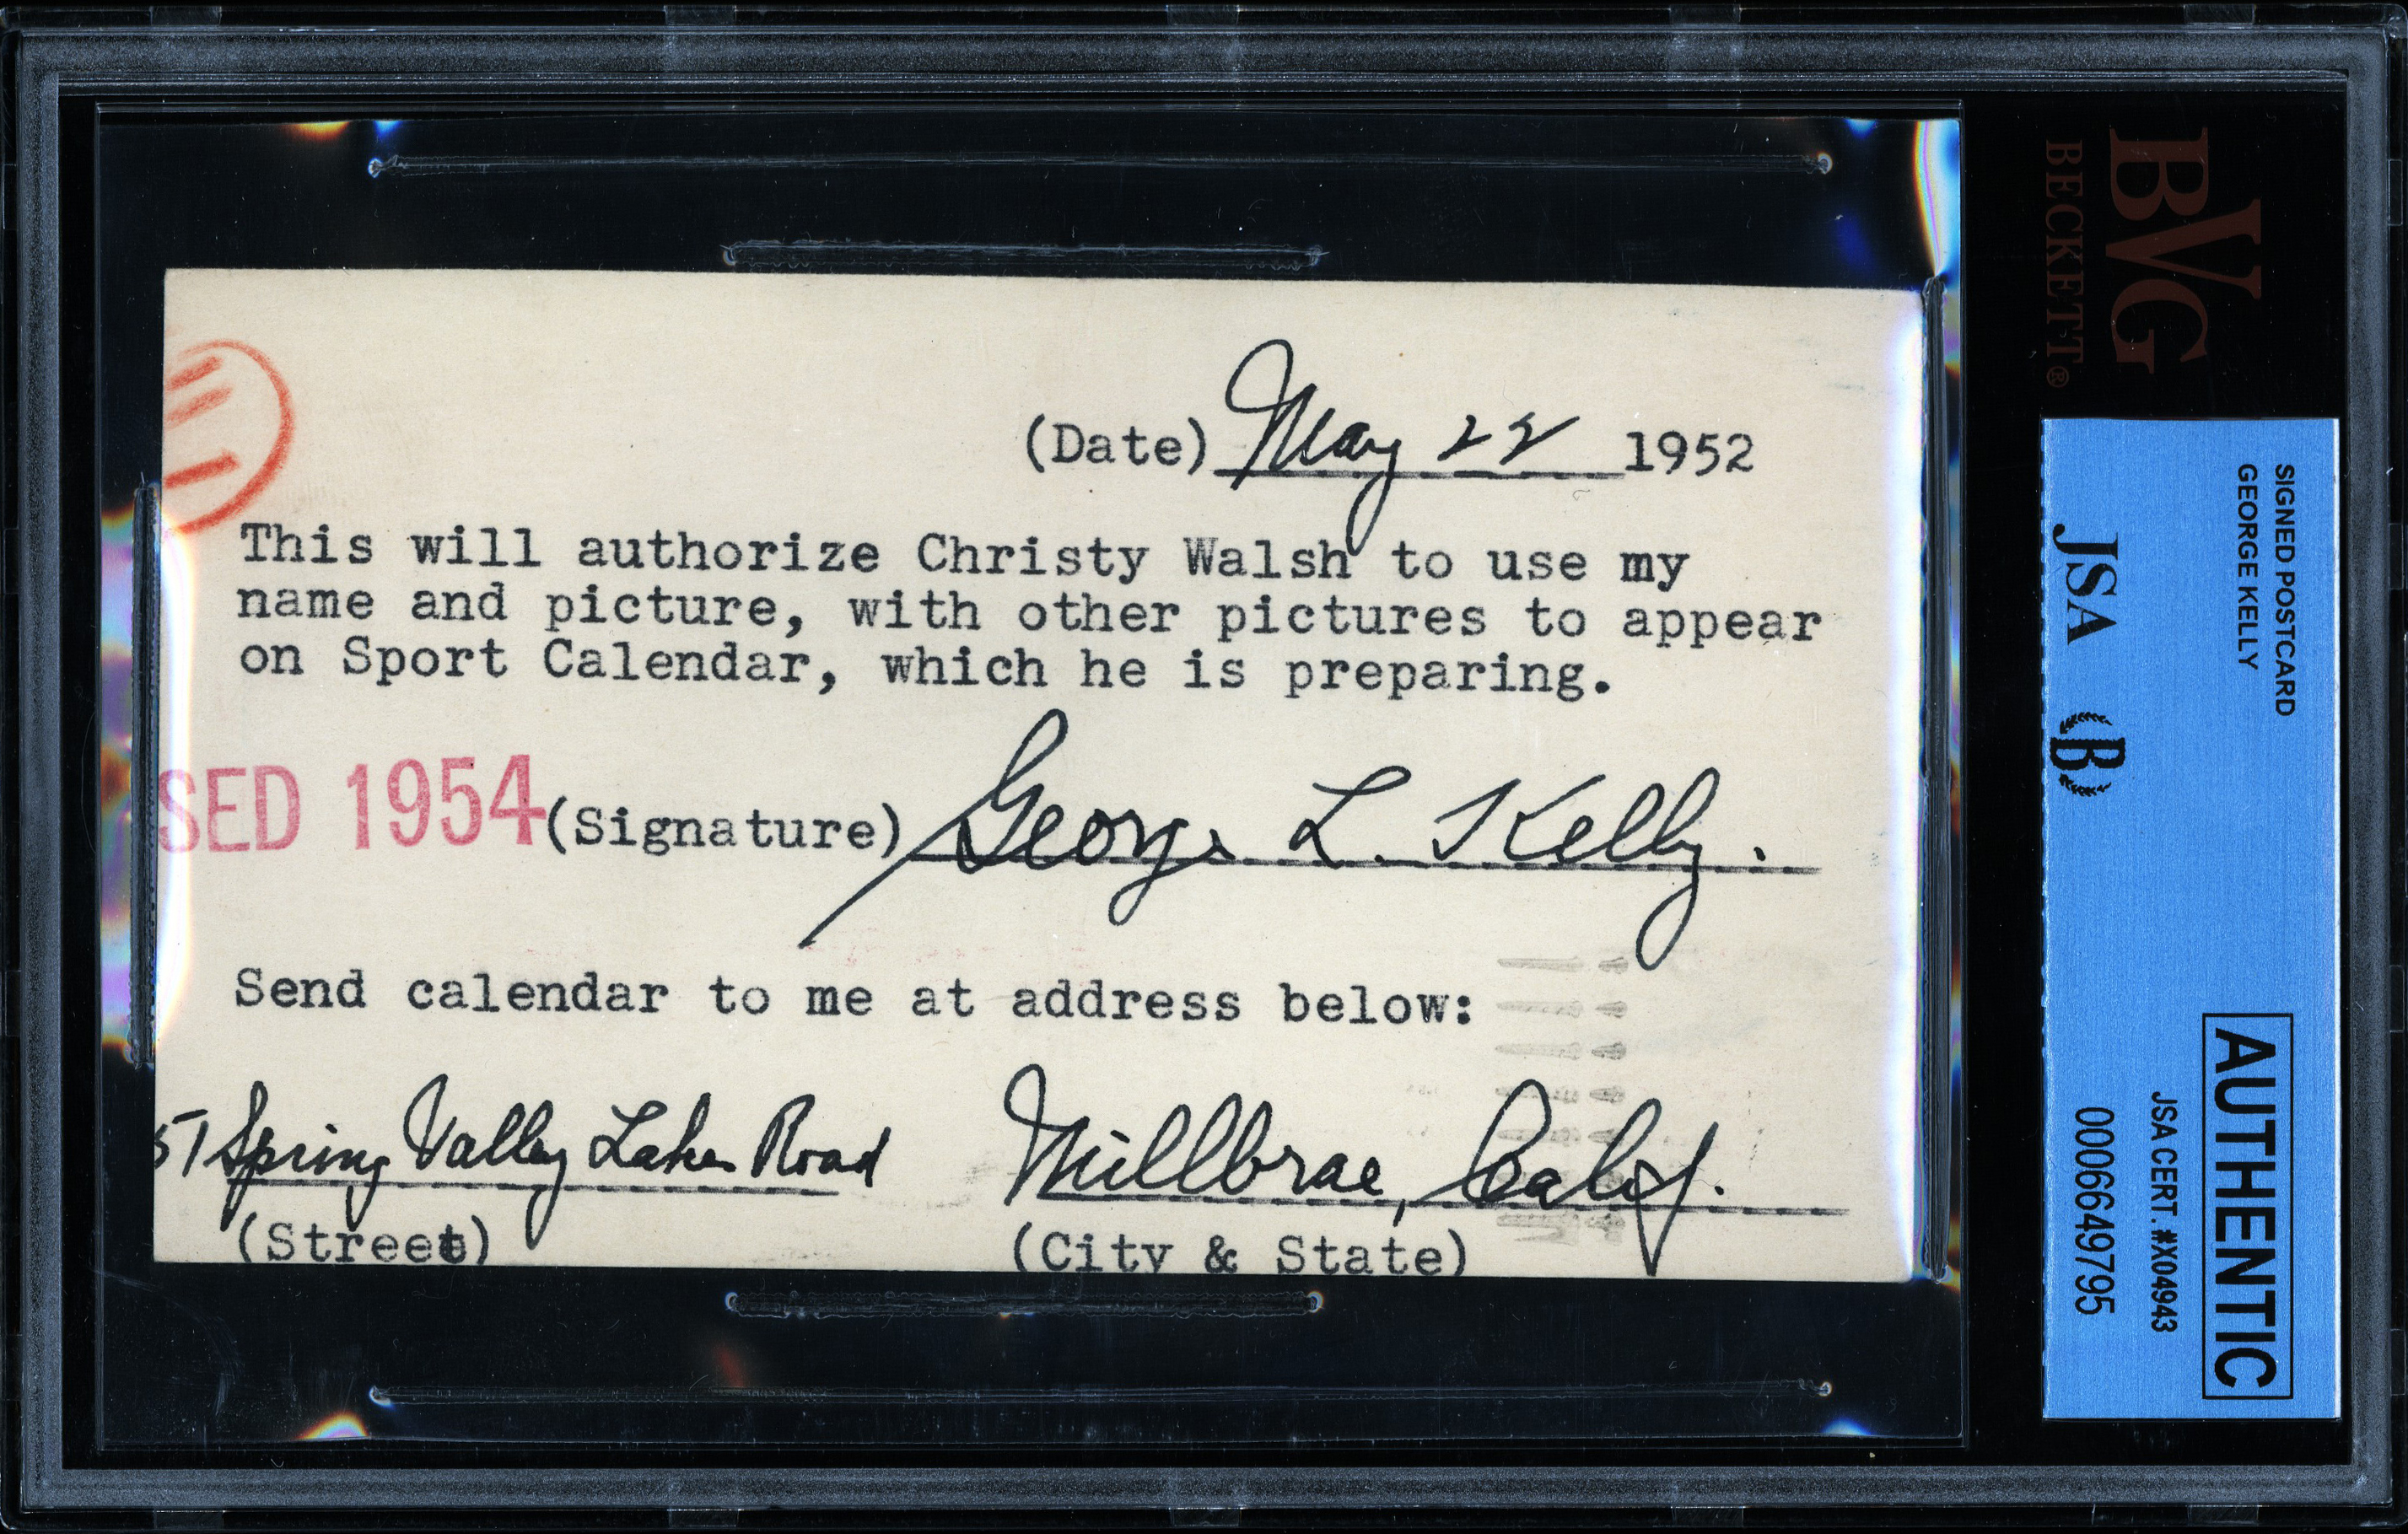 (Date) May 22 1952
This will authorize Christy Walsh to use my
name and picture, with other pictures to appear
on Sport Calendar, which he is preparing.
SED 1954
(Signature) George L. Kelly.
Send calendar to me at address below:
51 Spring Valley Lakes Road Millbrae, Calif.
(Street) (City & State)
BVG
BECKETT®
SIGNED POSTCARD
GEORGE KELLY
JSA B
AUTHENTIC
JSA CERT. #X04943
0006649795